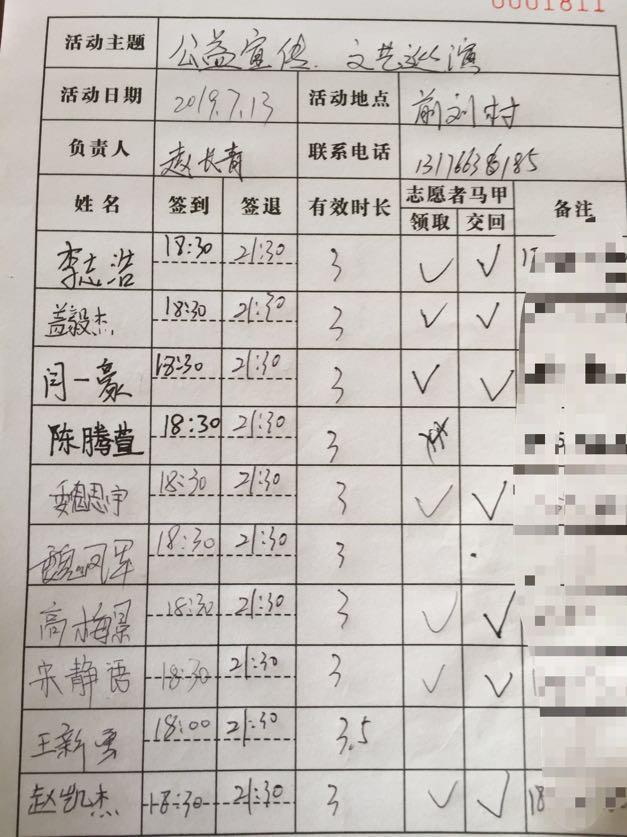 0001811
活动主题 公益宣传、文艺巡演
活动日期 2019.7.13 活动地点 前刘村
负责人 赵长青 联系电话
姓名 签到 签退 有效时长 志愿者马甲 备注
领取 交回
李志浩 18:30 21:30 3 ✓ ✓ 17
盖毅杰 18:30 21:30 3 ✓ ✓
闫一豪 18:30 21:30 3 ✓ ✓
陈腾萱 18:30 21:30 3
魏思宇 18:30 21:30 3 ✓ ✓
18:30 21:30 3
高梅景 18:30 21:30 3 ✓ ✓
宋静语 18:30 21:30 3 ✓ ✓
王新勇 18:00 21:30 3.5
赵凯杰 18:30 21:30 3 ✓ ✓ 18